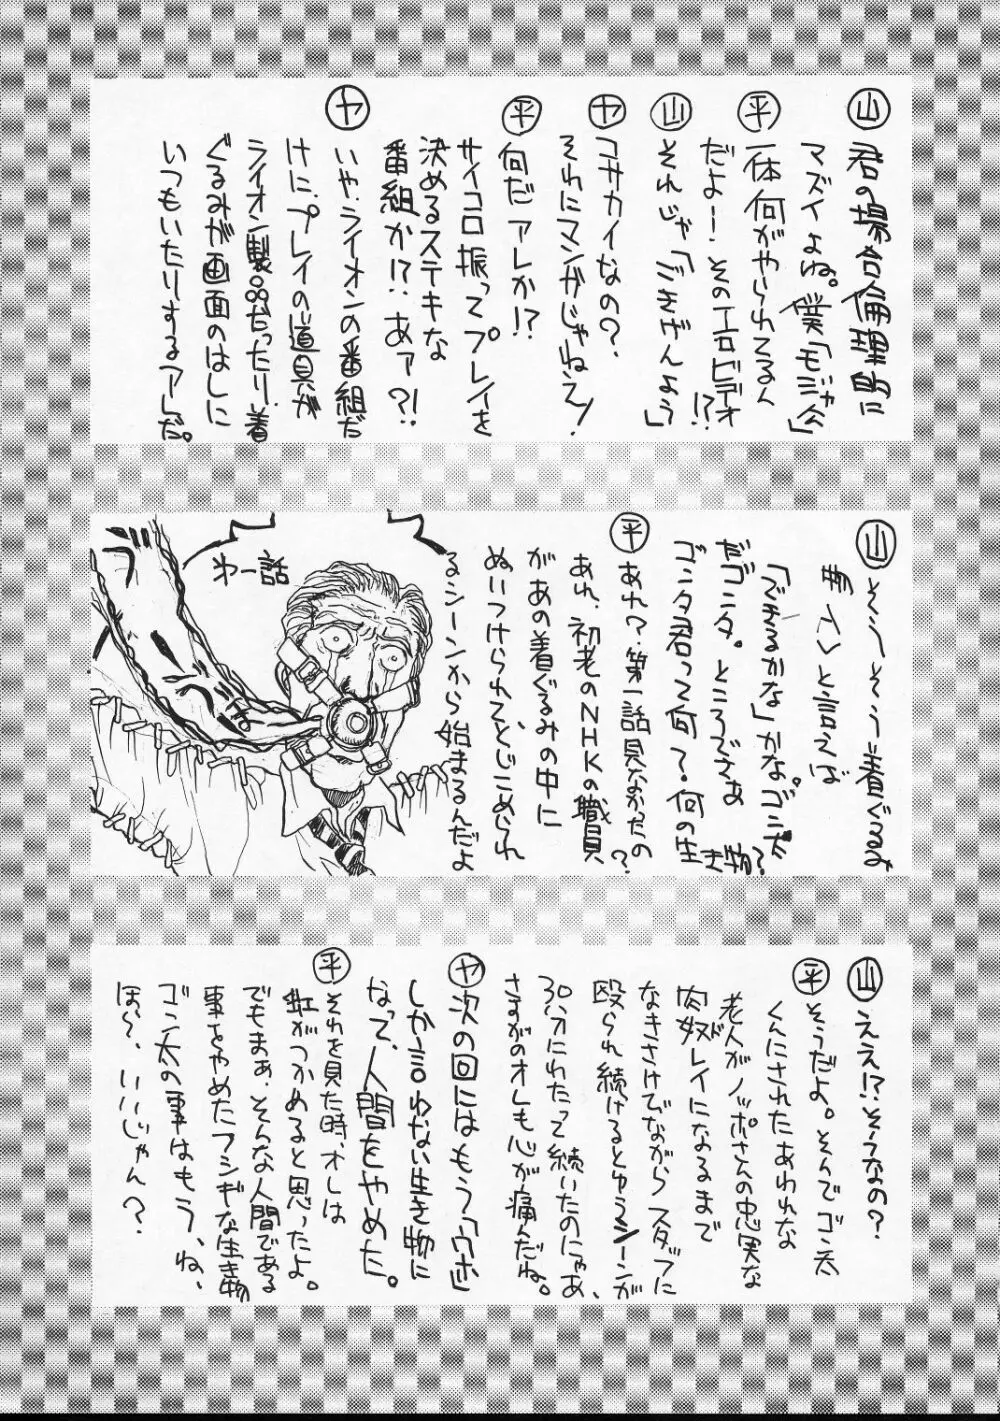 山 君の場合倫理的に
マズイよね。僕「モジャ公」
平 一体何がやられてるん
だよー!そのエロビデオ!?
山 それじゃ「ごきげんよう」
ヤ コサカイなの?
それにマンガじゃねえ!
平 何だアレか!?
サイコロ振ってプレイを
決めるステキな
番組か!?あァ?!
ヤ いや、ライオンの番組だ
けに、プレイの道具が
ライオン製品だったり、着
ぐるみが画面のはしに
いつもいたりするアレだ。
山 そうそう着ぐるみ
と言えば
「できるかな」かな。ゴン太
だゴンタ。ところでさぁ
ゴンタ君って何?何の生き物?
平 あれ?第一話見なかったの?
あれ、初老のNHKの職員
があの着ぐるみの中に
ぬいつけられて、とじこめられ
るシーンから始まるんだよ
第一話
山 ええ!?そうなの?
平 そうだよ。そんでゴン太
くんにされたあわれな
老人がノッポさんの忠実な
肉奴レイになるまで
なきさけびながらスタッフに
殴られ続けるとゆうシーンが
30分にわたって続いたのにゃあ、
さすがのオレも心が痛んだね。
ヤ 次の回にはもう「ウホ」
しか言わない生き物に
なって、人間をやめた。
平 それを見た時、オレは
虹がつかめると思ったよ。
でもまぁ、そんな人間である
事をやめたフシギな生き物
ゴン太の事はもう、ね、
ほら、いいじゃん?